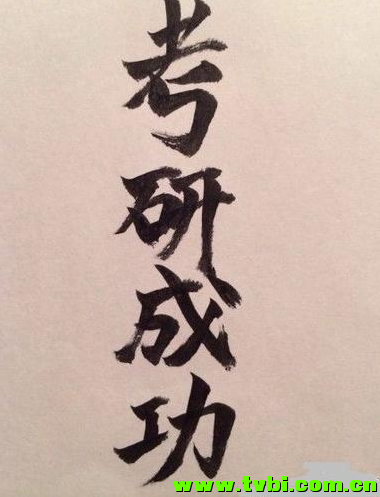 考研成功
www.tvbi.com.cn